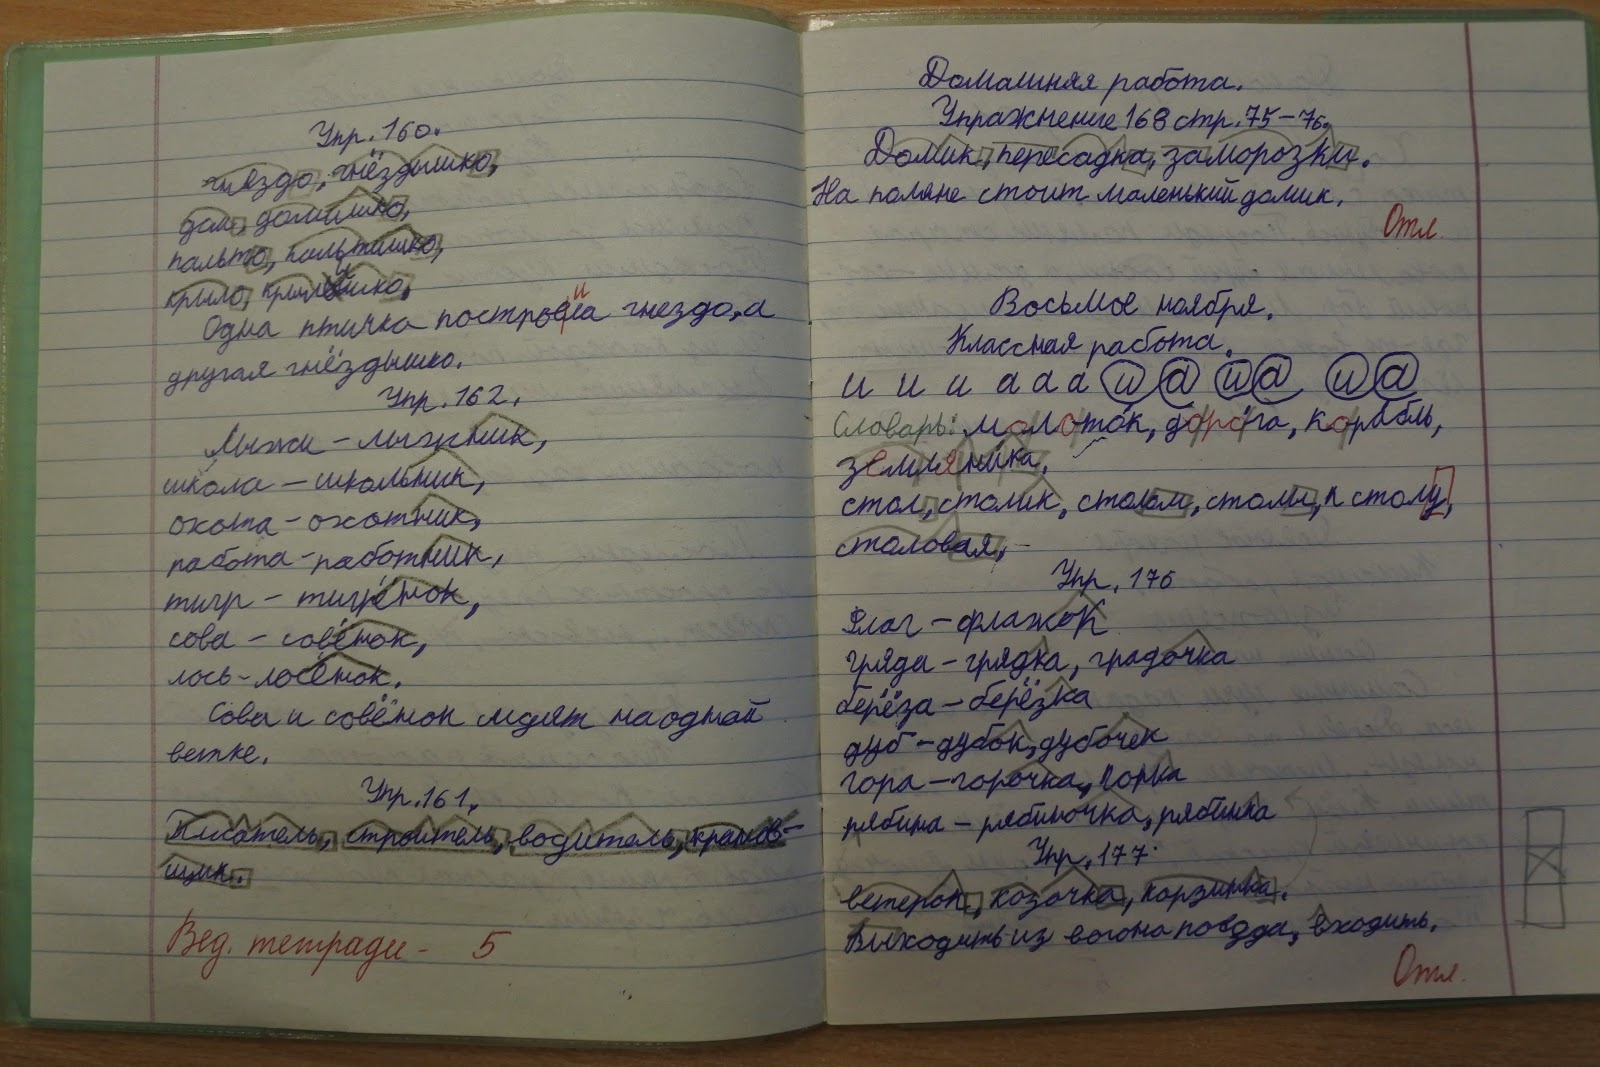 Упр. 160.
гнездо, гнёздышко,
дом, домишко,
пальто, пальтишко,
крыло, крылышко.
Одна птичка построила гнездо, а
другая гнёздышко.
Упр. 162.
Лыжи – лыжник,
школа – школьник,
охота – охотник,
работа – работник,
тигр – тигрёнок,
сова – совёнок,
лось – лосёнок.
Сова и совёнок сидят на одной
ветке.
Упр. 161.
Писатель, строитель, водитель, кранов-
щик.
Вед. тетради – 5
Домашняя работа.
Упражнение 168 стр. 75–76.
Домик, пересадка, заморозки.
На поляне стоит маленький домик.
Отл.
Восьмое ноября.
Классная работа.
и и и а а а и а и а и а
Словарь: молоток, дорога, корабль,
земляника.
стол, столик, столом, столы, к столу,
столовая,
Упр. 176
Флаг – флажок
гряда – грядка, градочка
берёза – берёзка
дуб – дубок, дубочек
гора – горочка, горка
рябина – рябиночка, рябинка
Упр. 177.
ветерок, козочка, корзинка.
Выходить из вогона поезда, входить.
Отл.